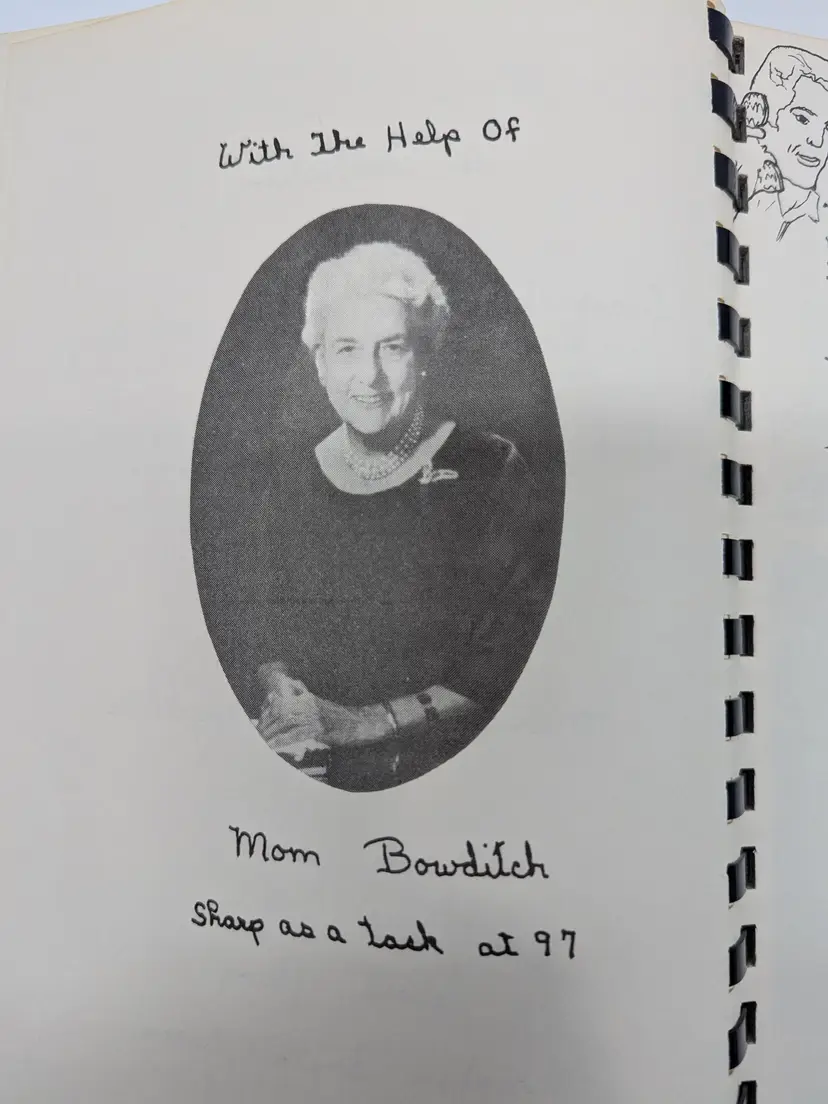 With The Help Of
Mom Bowditch
Sharp as a tack at 97